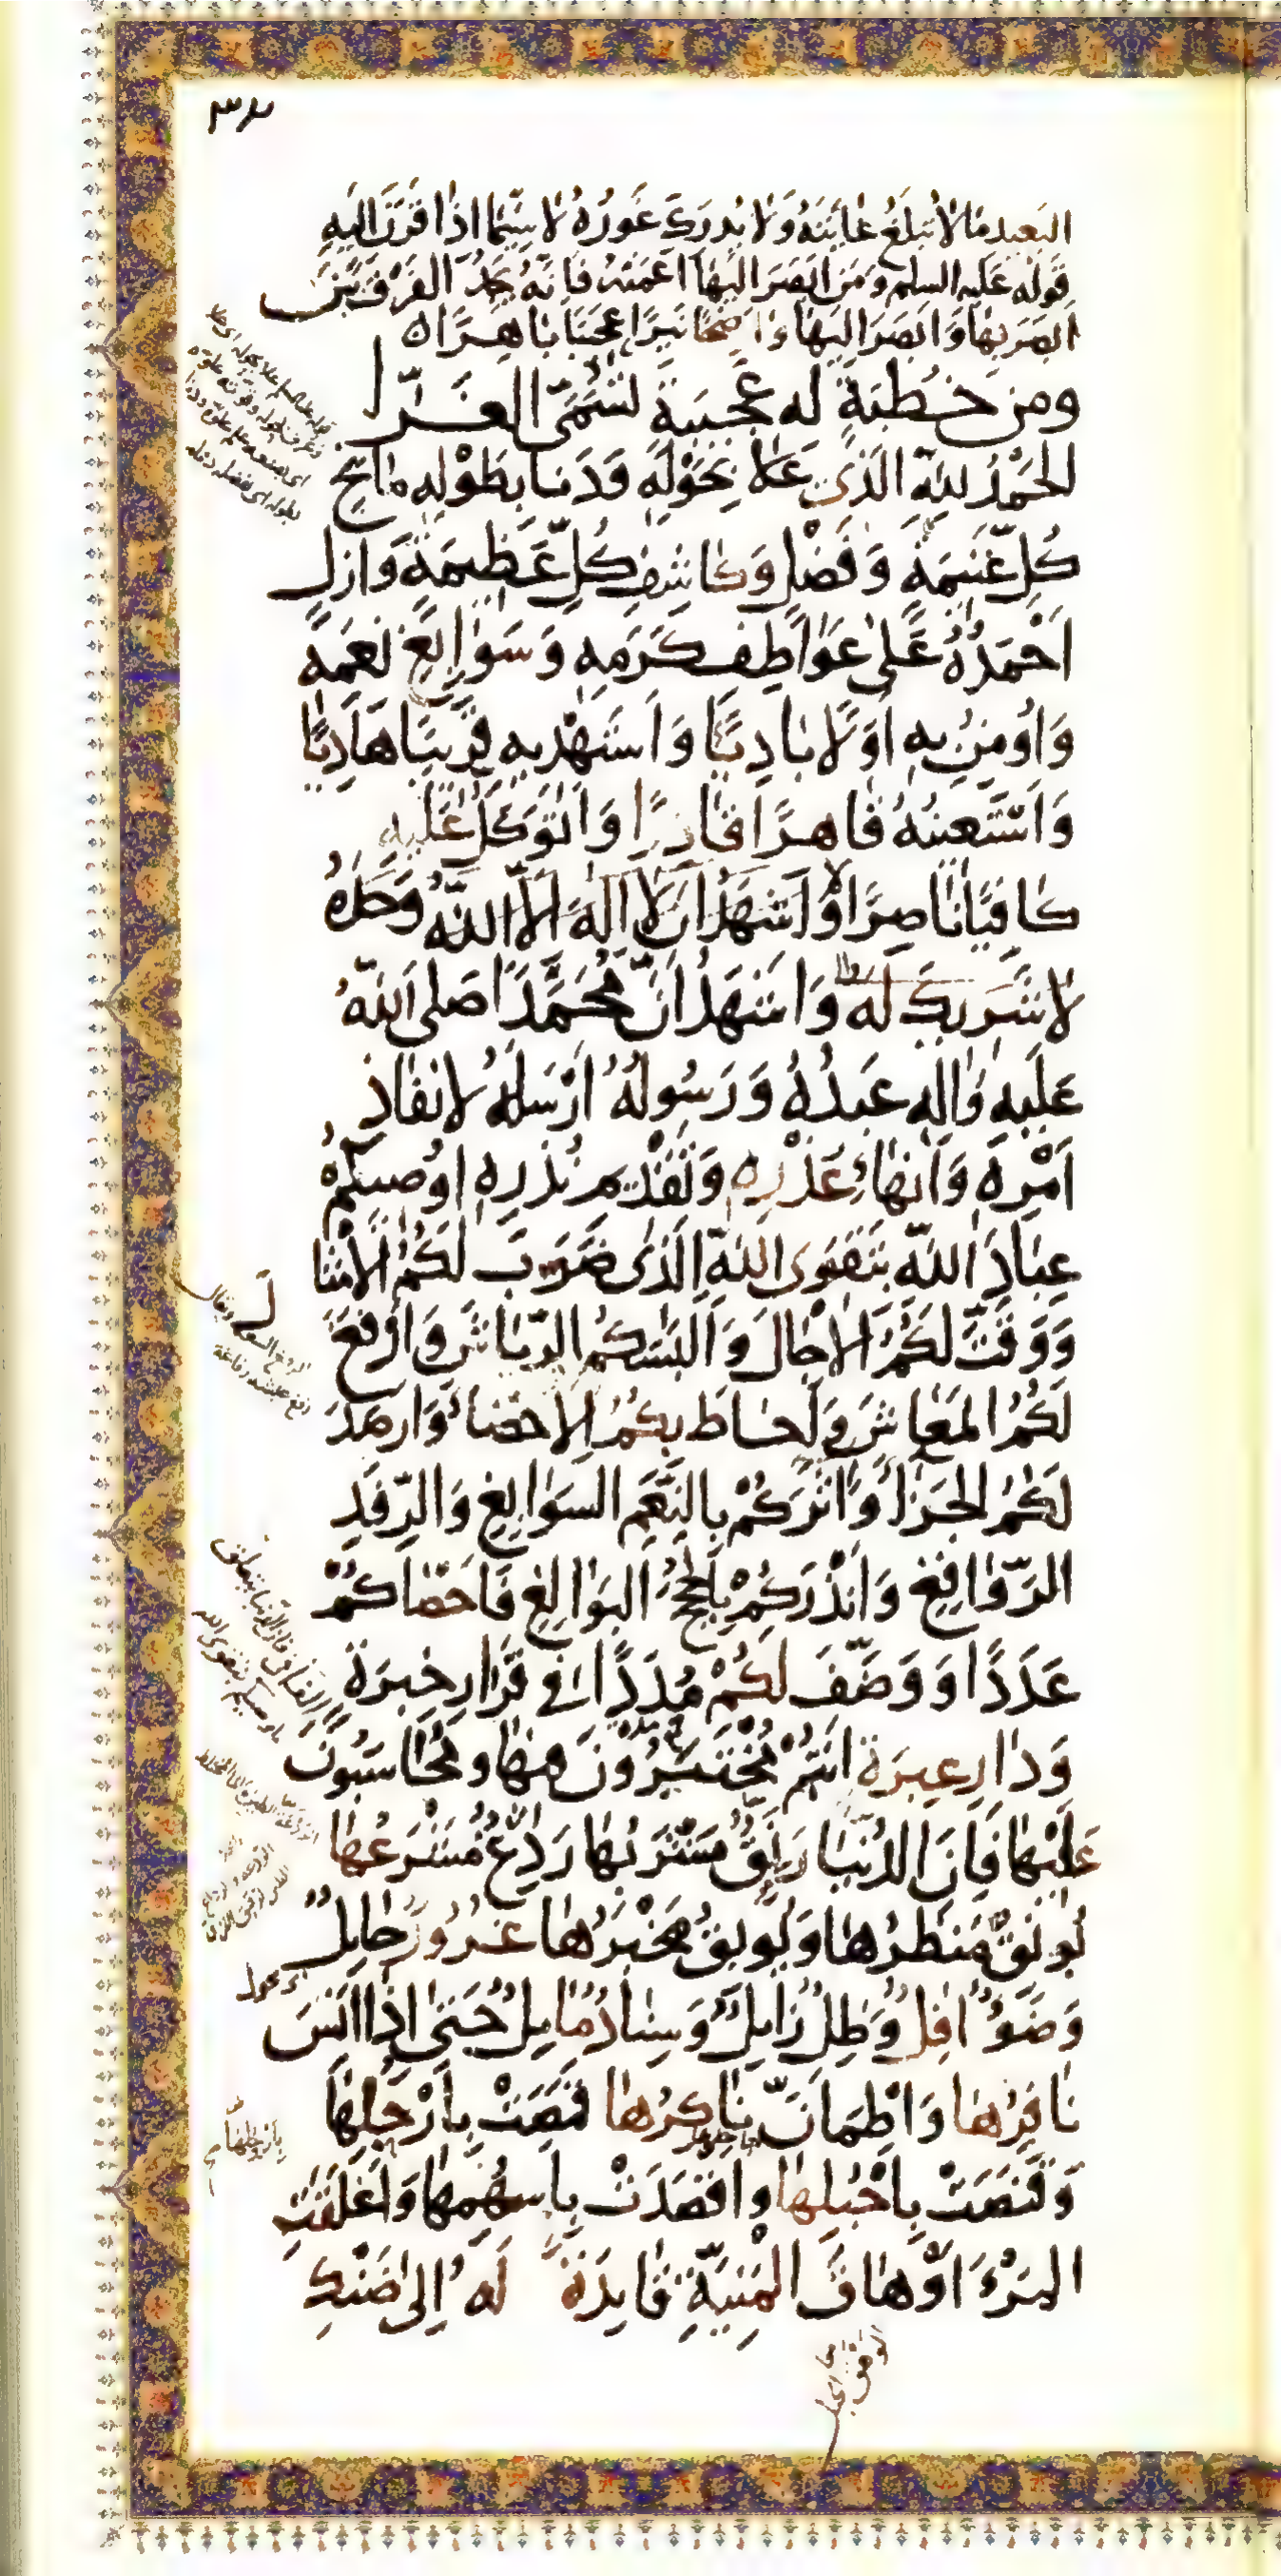 ٣٧
البَعيد مَا لا تبلغُ غايَتَهُ وَلا يُدرَكُ غَورُهُ لا سِيَّمَا اذَا قَرَنَ اليهِ
قَولَه عَليه السلم وَمَن ابصَرَ اليهَا اعمَته فَانَّهُ يَجدُ الفَرْقَ بَيْنَ
ابصَرَ بهَا وَابصَرَ اليهَا وَاضِحًا نَيِّرًا عَجيبًا بَاهِرًا
ومن خُطبَةٍ له عَجيبَةٍ تسَمَّى الغَرّا
الحَمْدُ للهِ الَّذى عَلا بِحَوْلِهِ وَدَنَا بِطَوْلِهِ مَانِحِ
كُلِّ غَنيمَةٍ وَفَضْلٍ وَكاشِفِ كُلِّ عَظِيمَةٍ وَازلٍ
اَحْمَدُهُ عَلى عَوَاطِفِ كَرَمِهِ وَسَوَابِغِ نِعَمِهِ
وَاُومِنُ بِهِ اَوَّلًا بَادِيًا وَاَستَهْدِيهِ قَرِيبًا هَادِيًا
وَاَستَعينُهُ قَاهِرًا قَادِرًا وَاَتَوَكَّلُ عَلَيهِ
كَافِيًا نَاصِرًا وَاَشهَدُ اَن لا اِلهَ اِلاّ اللهُ وَحدَهُ
لا شَرِيكَ لَه وَاَشهَدُ اَنَّ مُحَمَّدًا صَلى اللهُ
عَلَيهِ وَالِهِ عَبدُهُ وَرَسُولُهُ اَرْسَلَهُ لاِنفَاذِ
اَمْرِهِ وَاَنهَاءِ عُذْرِهِ وَتَقْدِيمِ نُذُرِهِ اُوصيكُمْ
عِبَادَ اللهِ بِتَقوَى اللهِ الَّذى ضَرَبَ لَكُمُ الاَمْثَا
لَ
وَوَقَّتَ لَكُمُ الاجَالَ وَاَلبَسَكُمُ الرِّيَاشَ وَاَرفَغَ
لَكُمُ المَعَاشَ وَاَحَاطَ بِكُمُ الاِحصَاءَ وَاَرصَدَ
لَكُمُ الجَزَاءَ وَاٰثَرَكُمْ بِالنِّعَمِ السَوَابِغِ وَالرِّفَدِ
الرَّوَافِغِ وَاَنذَرَكُمْ بِالحُجَجِ البَوَالِغِ فَاَحصَاكُمْ
عَدَدًا وَوَظَّفَ لَكُمْ مُدَدًا فى قَرَارِ خِبرَةٍ
وَدَارِ عِبرَةٍ اَنتُمْ مُخْتَبَرُونَ فيهَا وَمُحَاسَبُونَ
عَلَيْهَا فَاِنَّ الدُنْيَا رَنِقٌ مَشْرَبُهَا رَدِغٌ مَشْرَعُهَا
يُونِقُ مَنظَرُهَا وَيُوبِقُ مَخْبَرُهَا غُرُورٌ حَايِلٌ
وَضَوءٌ افِلٌ وَظِلٌّ زَايِلٌ وَسِنَادٌ مَايِلٌ حَتى اِذَا اَنِسَ
نَافِرُهَا وَاطمَانَّ نَاكِرُهَا قَمَصَتْ بِاَرْجُلِهَا
وَقَنَصَتْ بِاَحْبُلِهَا وَاقصَدَتْ بِاَسهُمِهَا وَاَعلَقَتِ
المَرْءَ اَوْهَاقُ المَنِيَّةِ قَايِدَةً لَهُ اِلى ضَنْكِ